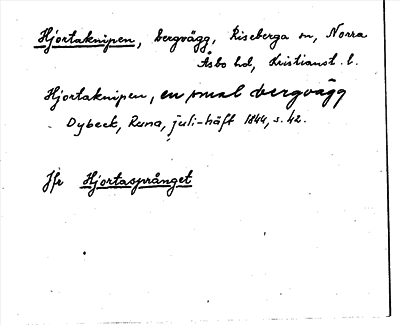 Hjortaknipen, bergvägg, Riseberga sn, Norra
Åsbo hd, Kristianst. l.
Hjortaknipen, en smal bergvägg
Dybeck, Runa, juli-häft 1844, s. 42.
Jfr Hjortasprånget